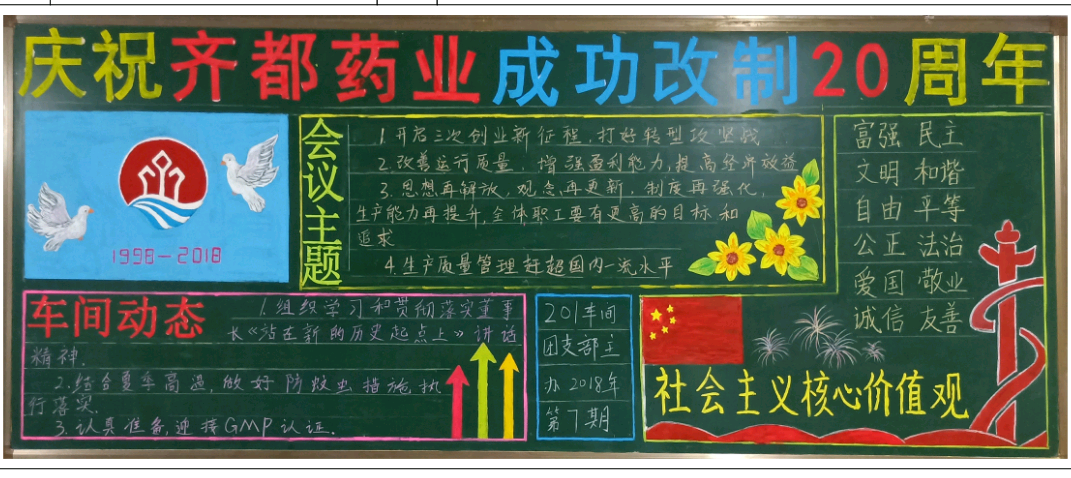 庆祝齐都药业成功改制20周年
1998-2018
会议主题
1.开启三次创业新征程,打好转型攻坚战
2.改善运行质量,增强盈利能力,提高经济效益
3.思想再解放,观念再更新,制度再强化,
生产能力再提升,全体职工要有更高的目标和
追求
4.生产质量管理赶超国内一流水平
富强 民主
文明 和谐
自由 平等
公正 法治
爱国 敬业
诚信 友善
车间动态
1.组织学习和贯彻落实董事
长《站在新的历史起点上》讲话
精神.
2.结合夏季高温,做好防蚊虫措施执
行落实.
3.认真准备,迎接GMP认证.
201车间
团支部主
办 2018年
第7期
社会主义核心价值观